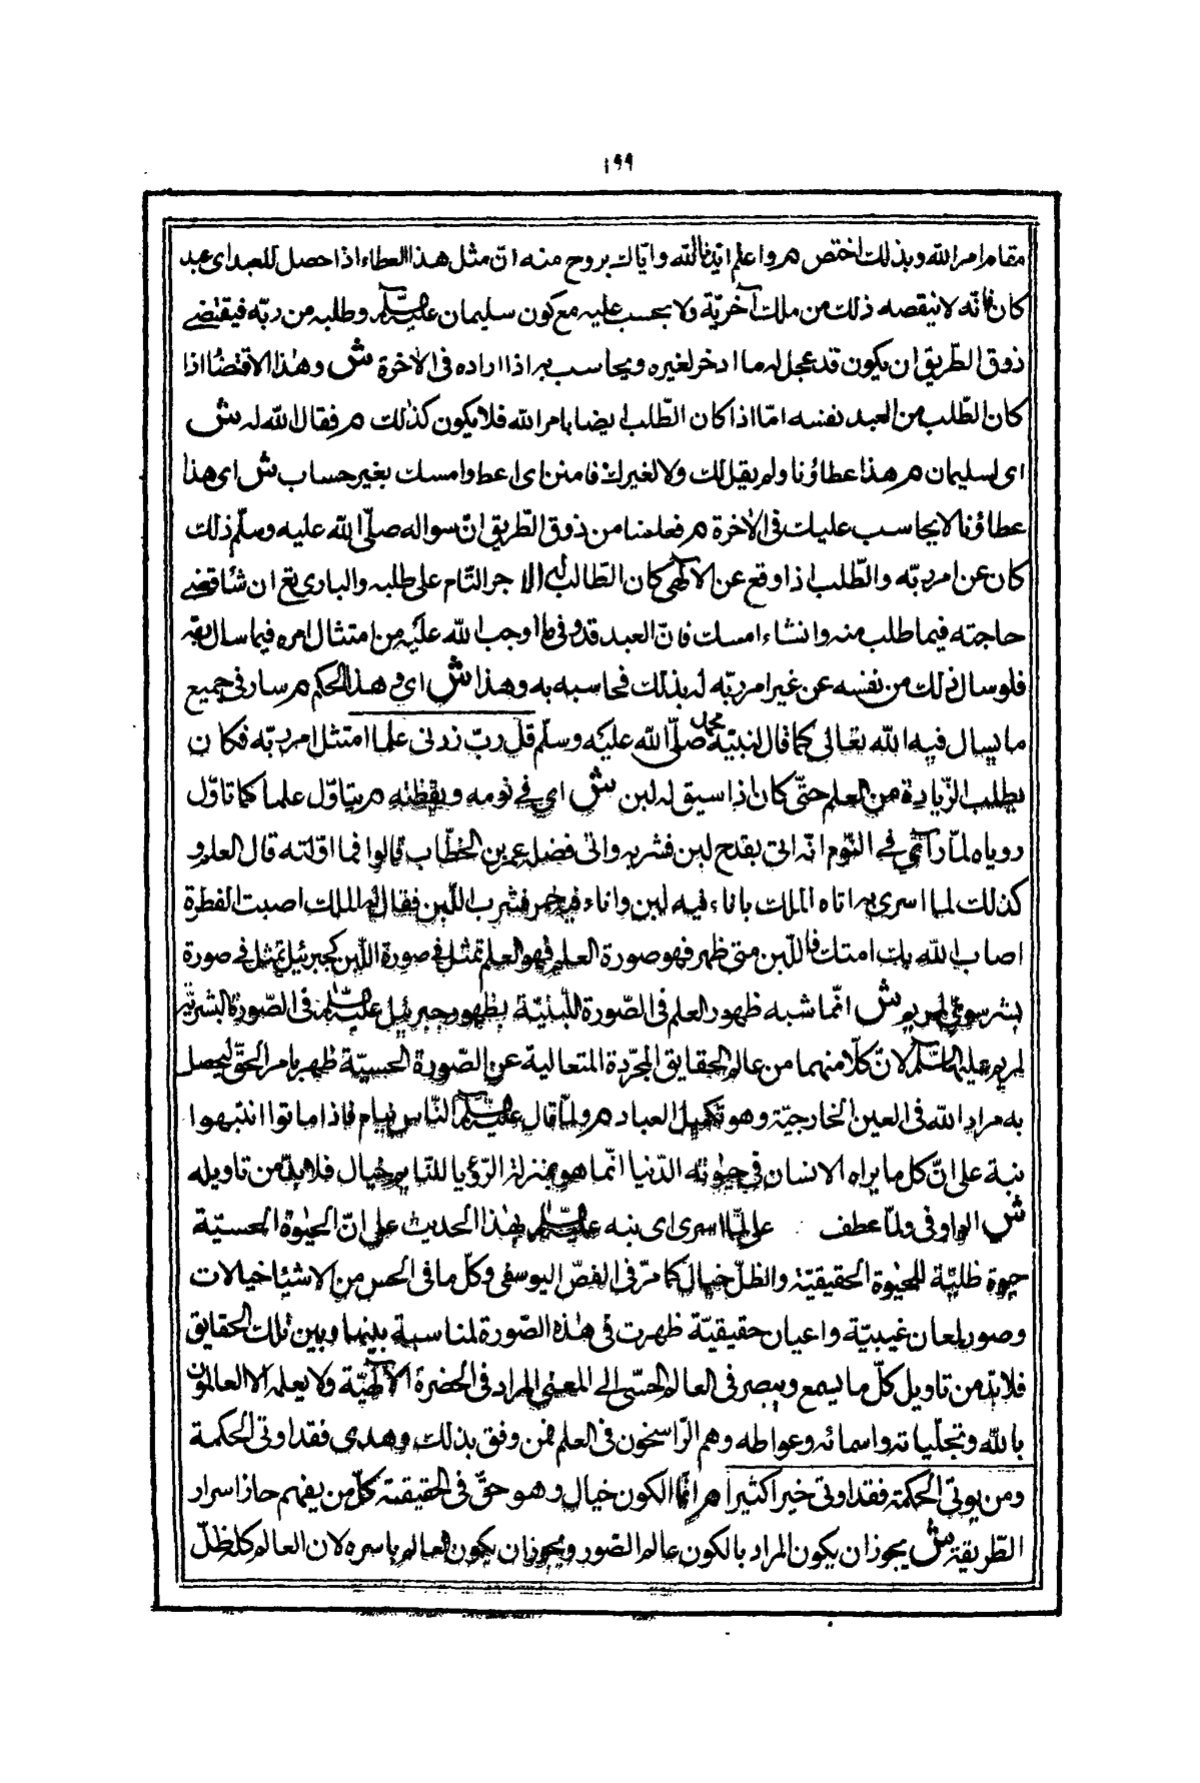 ١٩٩
مقام امر الله وبذلك اختص م واعلم ايدنا الله واياك بروح منه ان مثل هذا العطاء اذا حصل للعبد اى عبد
كان فانّه لا ينقصه ذلك من ملك آخريّة ولا يحسب عليه مع كون سليمان عليه السّلم وطلبه من ربّه فيقتضے
ذوق الطّريق ان يكون قد عجل له ما ادخر لغيره ويحاسب به اذا اراده فى الاخرة ش وهذا الاقتضا اذا
كان الطّلب من العبد نفسه امّا اذا كان الطّلب ايضا بامر الله فلا يكون كذلك م فقال الله له ش
اى لسليمان م هذا عطاؤنا ولم يقل لك ولا لغيرك فامنن اى اعط او امسك بغير حساب ش اى هذا
عطاؤنا لا يحاسب عليك فى الاخرة م فعلمنا من ذوق الطّريق انّ سواله صلّى الله عليه وسلّم ذلك
كان عن امر ربّه والطّلب اذا وقع عن الامر الالٓهى كان الطّالب له الاجر التّام على طلبه والبارى تع ان شأ قضے
حاجته فيما طلب منه وانشاء امسك فانّ العبد قد وفى ما اوجب الله عليه من امتثال امره فيما سال ربّه
فلو سال ذلك من نفسه عن غير امر ربّه له بذلك فحاسبه به وهذا ش اى وهذا الحكم م سار فى جميع
ما يسال فيه الله تعالى كما قال لنبيّه محمّد صلّى الله عليه وسلّم قل ربّ زدنى علما امتثل امر ربّه فكان
يطلب الزّيادة من العلم حتّى كان اذا سيق له لبن ش اى فے نومه ويقظته م يتاوّل علما كما تاوّل
روياه لمّا رآى فے النّوم انّه اتى بقدح لبن فشربه واتى فضله عمر بن الخطّاب قالوا فما اوّلته قال العلم و
كذلك لما اسرى به اتاه الملك باناء فيه لبن واناء فيه خمر فشرب اللّبن فقال له الملك اصبت الفطرة
اصاب الله بك امتك فاللّبن متى ظهر فهو صورة العلم فهو العلم تمثل فے صورة اللّبن كجبرئيل تمثل فے صورة
بشر سوىّ لمريم ش انّما شبه ظهور العلم فى الصّورة اللّبنيّة بظهور جبرئيل عليه السّلم فى الصّورة البشريّة
لمريم عليها السّلم لانّ كلّا منهما من عالم الحقايق المجرّدة المتعالية عن الصّورة الحسيّة ظهر بامر الحقّ ليحصل
به مراد الله فى العين الخارجيّة وهو تكميل العباد م ولمّا قال عليه السّلم النّاس نيام فاذا ماتوا انتبهوا
نبة على انّ كل ما يراه الانسان فى حيوته الدّنيا انّما هو بمنزلة الرّؤيا للنّايم خيال فلا بدّ من تاويله
ش الواو فى ولمّا عطف على لمّا اسرى اى نبه عليه السّلم بهذا الحديث على انّ الحيوة الحسيّة
حيوة ظليّة للحيوة الحقيقيّة والظلّ خيال كما مرّ فى الفصّ اليوسفى وكلّ ما فى الحس من الاشيئا خيالات
وصور لمعان غيبيّة واعيان حقيقيّة ظهرت فى هذه الصّورة لمناسبة بينها وبين تلك الحقايق
فلا بدّ من تاويل كلّ ما يسمع ويبصر فى العالم الحسّى الے المعنى المراد فى الحضرة الالٓهيّة ولا يعلمه الا العالمون
بالله وتجلّياته واسمائه وعوالمه وهم الرّاسخون فى العلم فمن وفق بذلك وهدى فقد اوتى الحكمة
ومن يوتى الحكمة فقد اوتى خيرا كثيرا م انّما الكون خيال وهو حقّ فى الحقيقة كلّ من يفهم حاز اسرار
الطّريقة ش يجوز ان يكون المراد بالكون عالم الصّور ويجوز ان يكون العالم باسره لان العالم كله ظلّ